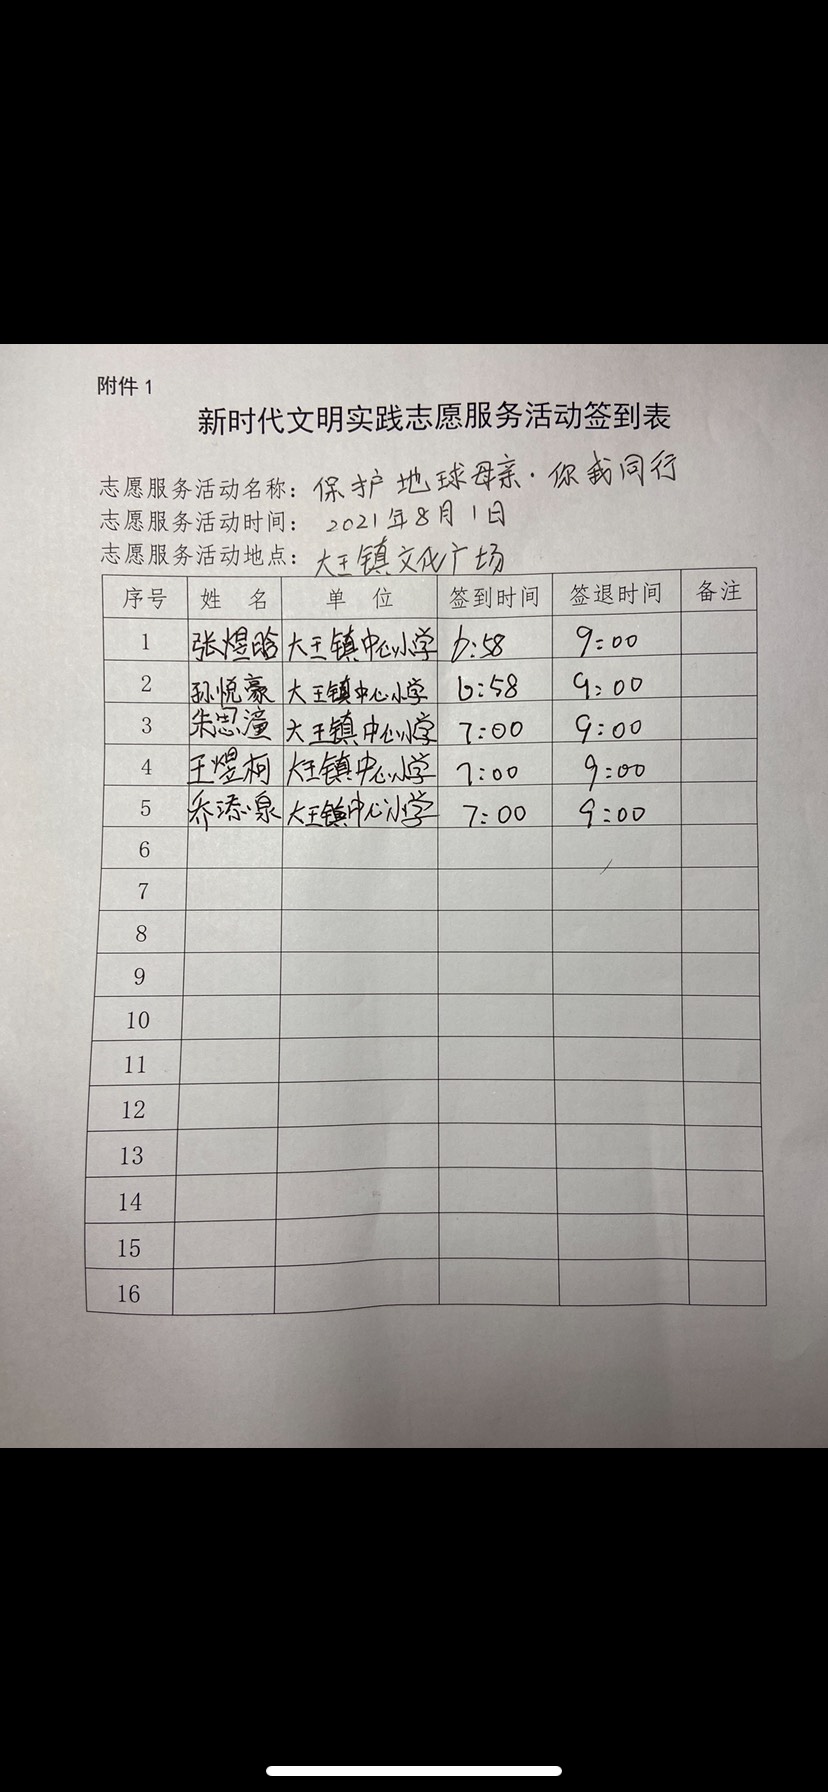 附件1
新时代文明实践志愿服务活动签到表
志愿服务活动名称：保护地球母亲·你我同行
志愿服务活动时间：2021年8月1日
志愿服务活动地点：大王镇文化广场
序号 姓 名 单 位 签到时间 签退时间 备注
1 张煜晗 大王镇中心小学 6:58 9:00
2 孙悦豪 大王镇中心小学 6:58 9:00
3 朱思潼 大王镇中心小学 7:00 9:00
4 王煜柯 大王镇中心小学 7:00 9:00
5 乔添泉 大王镇中心小学 7:00 9:00
6
7
8
9
10
11
12
13
14
15
16